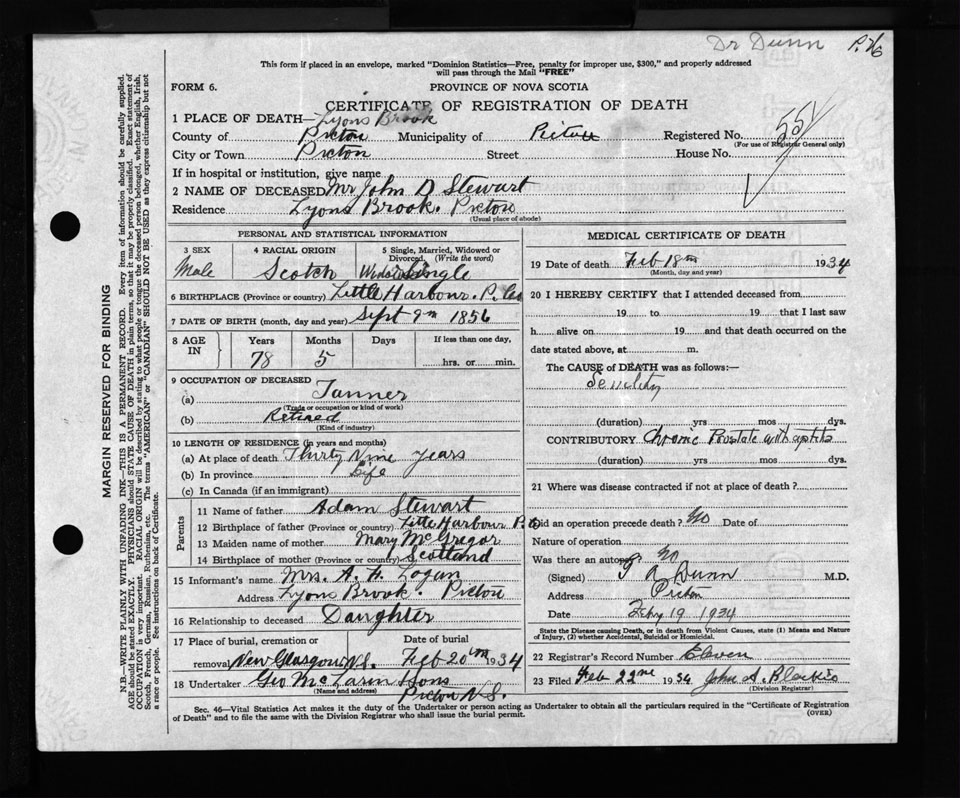 Dr Dunn P. 26
This form if placed in an envelope, marked "Dominion Statistics—Free, penalty for improper use, $300," and properly addressed
will pass through the Mail "FREE"
FORM 6.
PROVINCE OF NOVA SCOTIA
CERTIFICATE OF REGISTRATION OF DEATH
1 PLACE OF DEATH— Lyons Brook
County of Pictou Municipality of Pictou Registered No. 55
(For use of Registrar General only)
City or Town Pictou Street House No.
If in hospital or institution, give name
2 NAME OF DECEASED Mr John D Stewart
Residence Lyons Brook. Pictou
(Usual place of abode)
PERSONAL AND STATISTICAL INFORMATION
3 SEX Male
4 RACIAL ORIGIN Scotch
5 Single, Married, Widowed or Divorced, (Write the word)
Single
6 BIRTHPLACE (Province or country) Little Harbour. P. Co
7 DATE OF BIRTH (month, day and year) Sept 9th 1856
8 AGE IN
Years Months Days If less than one day,
78 5 hrs. or min.
9 OCCUPATION OF DECEASED
(a) Tanner
(Trade or occupation or kind of work)
(b) Retired
(Kind of industry)
10 LENGTH OF RESIDENCE (in years and months)
(a) At place of death Thirty Nine years
(b) In province Life
(c) In Canada (if an immigrant)
Parents
11 Name of father Adam Stewart
12 Birthplace of father (Province or country) Little Harbour P. Co
13 Maiden name of mother Mary McGregor
14 Birthplace of mother (Province or country) Scotland
15 Informant's name Mrs. A. H. Logan
Address Lyons Brook. Pictou
16 Relationship to deceased Daughter
17 Place of burial, cremation or removal New Glasgow N.S.
Date of burial Feb 20th 1934
18 Undertaker Geo McLaren Sons
(Name and address) Pictou N.S.
MEDICAL CERTIFICATE OF DEATH
19 Date of death Feb 18th 1934
(Month, day and year)
20 I HEREBY CERTIFY that I attended deceased from
19 to 19 that I last saw
h alive on 19 and that death occurred on
date stated above, at m.
The CAUSE of DEATH was as follows:—
Senility
(duration) yrs mos dys.
CONTRIBUTORY Chronic Prostate with cystitis
(duration) yrs mos dys.
21 Where was disease contracted if not at place of death?
Did an operation precede death? No Date of
Nature of operation
Was there an autopsy? No
(Signed) Dunn M.D.
Address Pictou
Date Feby 19 1934
State the Disease causing Death, or in death from Violent Causes, state (1) Means and Nature
of Injury, (2) whether Accidental, Suicidal or Homicidal.
22 Registrar's Record Number Eleven
23 Filed Feb 22nd 1934 John A. Blaikie
(Division Registrar)
Sec. 46—Vital Statistics Act makes it the duty of the Undertaker or person acting as Undertaker to obtain all the particulars required in the "Certificate of Registration
of Death" and to file the same with the Division Registrar who shall issue the burial permit.
(OVER)
MARGIN RESERVED FOR BINDING
N.B.—WRITE PLAINLY WITH UNFADING INK—THIS IS A PERMANENT RECORD. Every item of information should be carefully supplied.
AGE should be stated EXACTLY. PHYSICIANS should STATE CAUSE OF DEATH in plain terms, so that it may be properly classified. Exact statement of
OCCUPATION is very important. RACIAL ORIGIN will be described by stating to what people or tongue the deceased person belonged, whether English, Irish,
Scotch, French, German, Russian, Ruthenian, etc. The terms "AMERICAN" or "CANADIAN" SHOULD NOT BE USED as they express citizenship but not
a race or people. See instructions on back of Certificate.